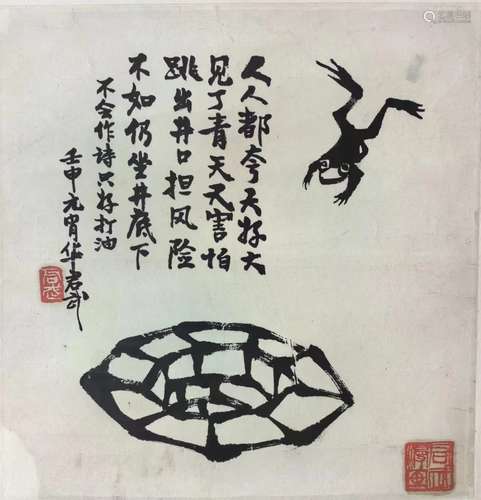 人人都夸天好大
见了青天又害怕
跳出井口担风险
不如仍坐井底下
不会作诗只好打油
壬申元宵华君武